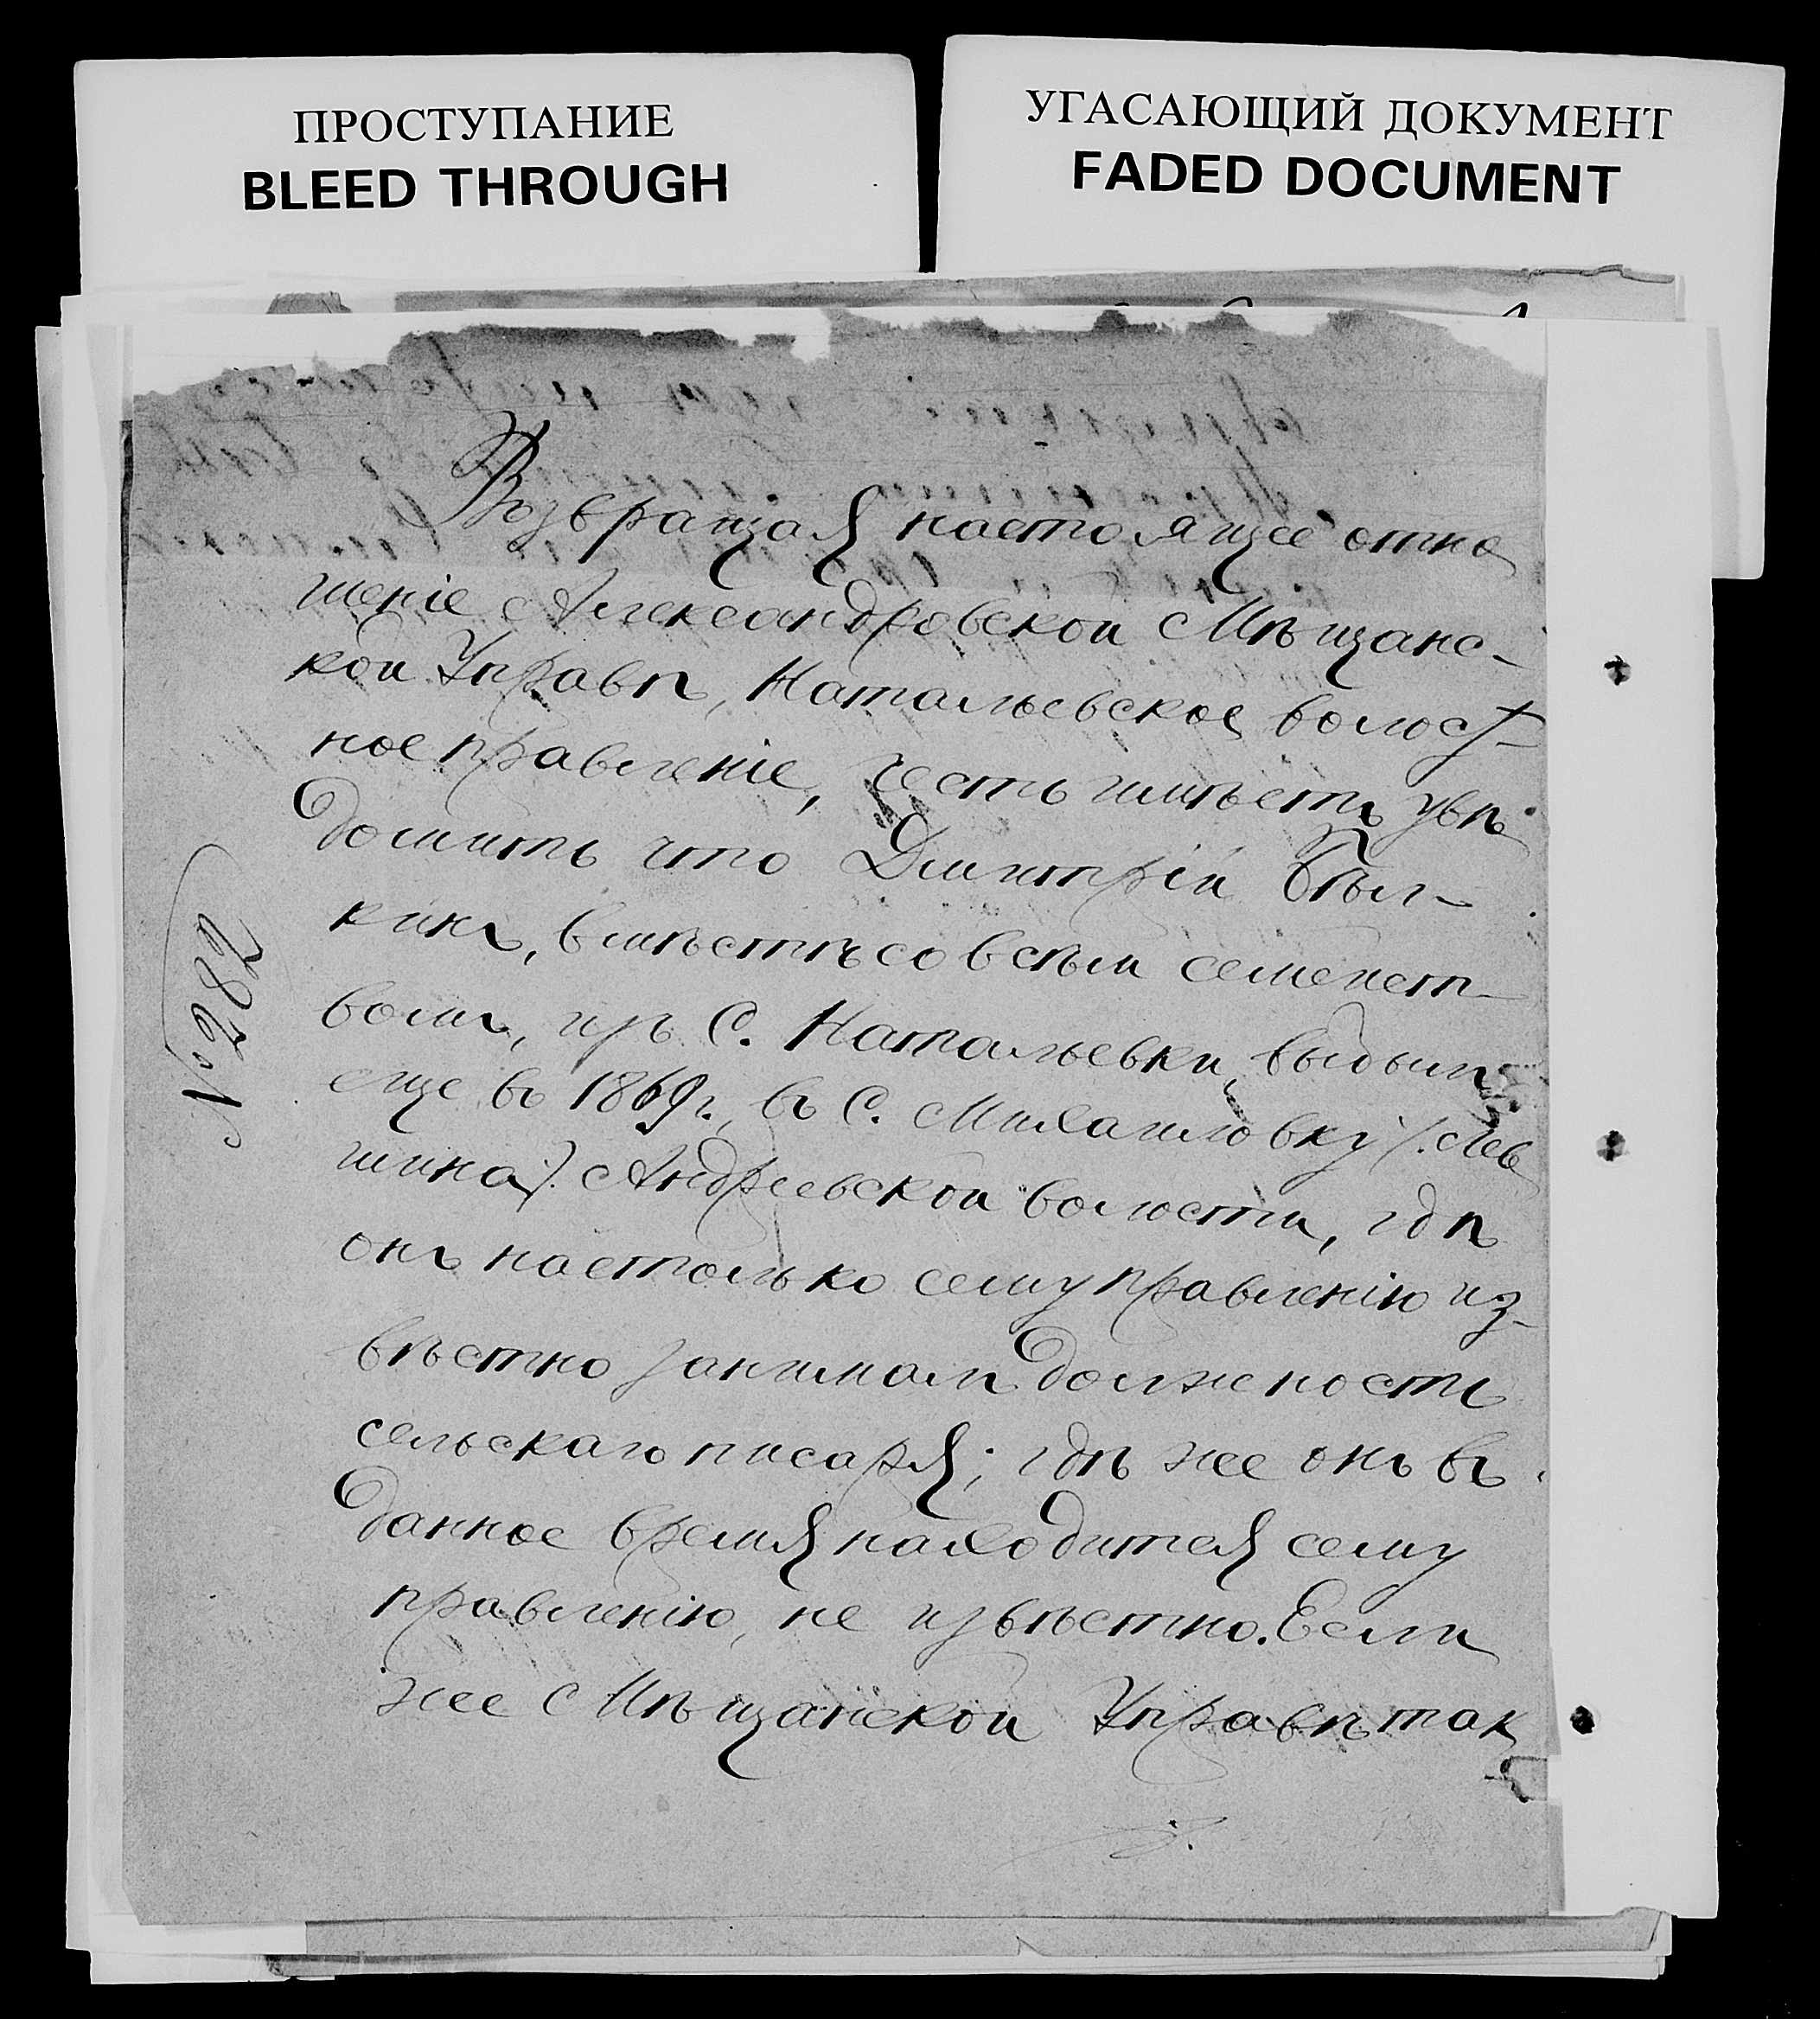 ПРОСТУПАНИЕ
BLEED THROUGH
УГАСАЮЩИЙ ДОКУМЕНТ
FADED DOCUMENT
Возвращая настоящее отно
шеніе Александровской Мѣщанс-
кой Управѣ, Натальевское волост-
ное правленіе, честь имѣетъ увѣ
домить что Дмитрій Бѣл-
кинъ, вмѣстѣ со всѣмъ семейст-
вомъ, изъ С. Натальевки, выбылъ
еще въ 1869 г. въ С. Михайловку /:Лев
шина:/ Андреевской волости, гдѣ
онъ настолько сему правленію из-
вѣстно занималъ должность
сельскаго писаря; гдѣ же онъ въ
данное время находится сему
правленію, не извѣстно. Если
же Мѣщанской Управѣ так
№ 282